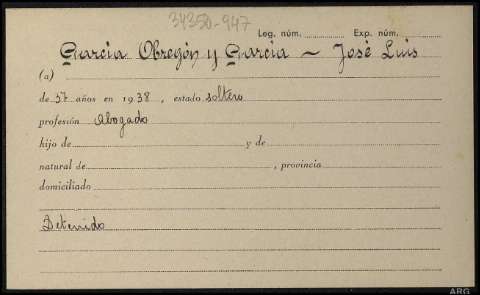 34350-947
Leg. núm. Exp. núm.
García Obregón y García ~ José Luis
(a)
de 37 años en 1938, estado soltero
profesión Abogado
hijo de y de
natural de , provincia
domiciliado
Detenido
ARG